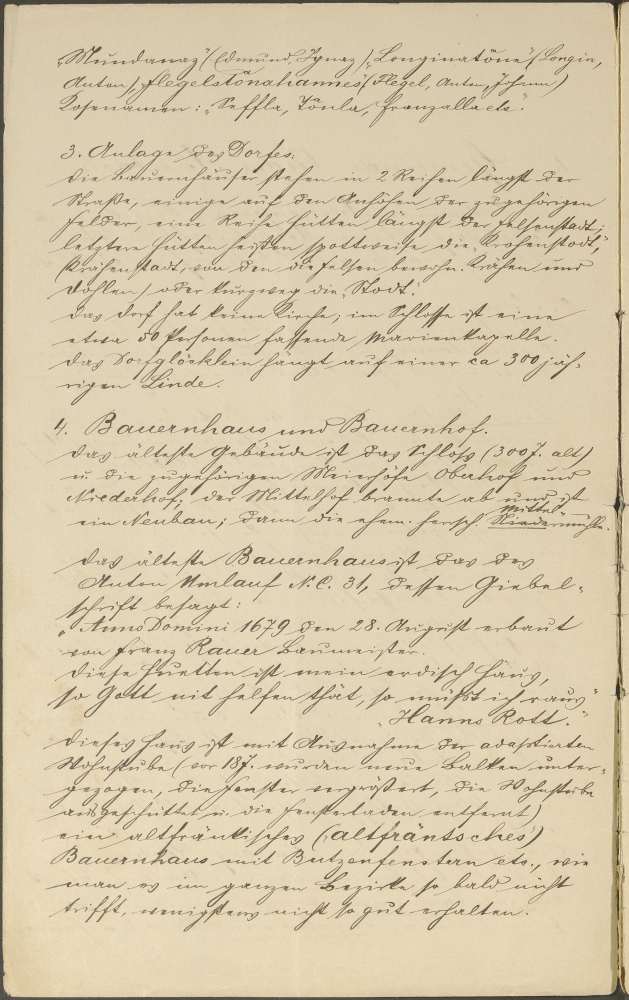 „Mundanaz“ (Edmund, Ignaz), „Longinatöne“ (Longin,
Anton), „Flegelstönahannes“ (Flegel, Anton, Johann)
Kosenamen: „Seffla, Tönla, Franzalla etc“.
3. Anlage des Dorfes.
Die Bauernhäuser stehen in 2 Reihen längst der
Straße, einige auf den Anhöhen der zugehörigen
Felder, eine Reihe Hütten längst der Felsenstadt;
letztere Hütten heißen spottweise die „Krohenstodt“,
(Krähenstadt, von den die Felsen bewohn. Krähen und
Dohlen) oder kurzweg die „Stodt“.
Das Dorf hat keine Kirche; im Schlosse ist eine
etwa 50 Personen fassende Marienkapelle.
Das Dorfglöcklein hängt auf einer ca 300 jäh-
rigen Linde.
4. Bauernhaus und Bauernhof.
Das älteste Gebäude ist das Schloß (300 J. alt)
u. die zugehörigen Meierhöfe Oberhof und
Niederhof; der Mittelhof brannte ab und ist
ein Neubau; dann die ehem. hersch. Niedermühle.
Mittel
Das älteste Bauernhaus ist das des
Anton Umlauf N. C. 31, dessen Giebel-
schrift besagt:
„Anno Domini 1679 den 28. August erbaut
von Franz Rauer Baumeister.
Diese Huetten ist mein erdisch Haus,
so Gott nit helfen thät, so müßt ich raus“
„Hanns Rott.“
Dieses Haus ist mit Ausnahme der adaptierten
Wohnstube (vor 18 J. wurden neue Balken unter-
gezogen, die Fenster vergrößert, die Wohnstube
ausgeschüttet u. die Fensterladen entfernt)
ein altfränkisches („altfräntsches“)
Bauernhaus mit Butzenfenstern etc., wie
man es im ganzen Bezirke so bald nicht
trifft, wenigstens nicht so gut erhalten.